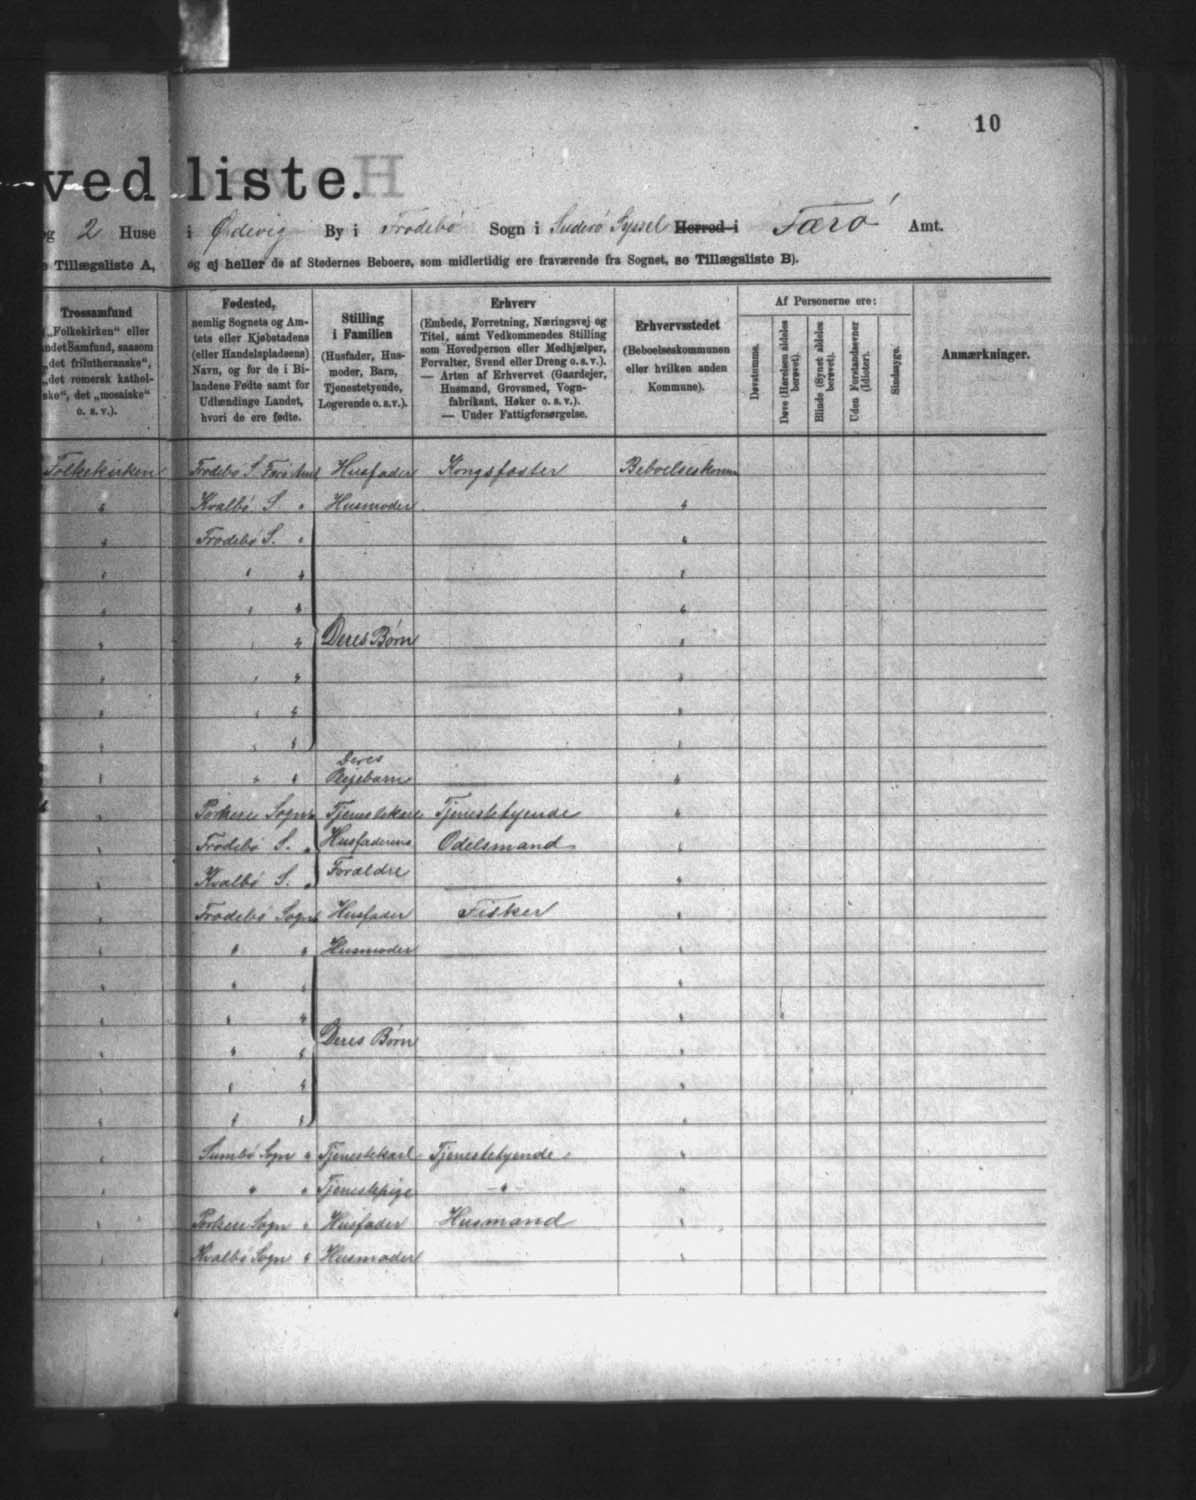 10
ved liste.
og 2 Huse i Ødevig By i Frodebø Sogn i Suderø Syssel Herred i Færø Amt.
e Tillægsliste A, og ej heller de af Stedernes Beboere, som midlertidig ere fraværende fra Sognet, se Tillægsliste B).
Trossamfund
(„Folkekirken“ eller
andet Samfund, saasom
„det frilutheranske“,
„det romersk kathol-
ske“, det „mosaiske“
o. s. v.).
Fødested,
nemlig Sognets og Am-
tets eller Kjøbstadens
(eller Handelspladsens)
Navn, og for de i Bi-
landene Fødte samt for
Udlændinge Landet,
hvori de ere fødte.
Stilling
i Familien
(Husfader, Hus-
moder, Barn,
Tjenestetyende,
Logerende o. s. v.).
Erhverv
(Embede, Forretning, Næringsvej og
Titel, samt Vedkommendes Stilling
som Hovedperson eller Medhjælper,
Forvalter, Svend eller Dreng o. s. v.).
— Arten af Erhvervet (Gaardejer,
Husmand, Grovsmed, Vogn-
fabrikant, Høker o. s. v.).
— Under Fattigforsørgelse.
Erhvervsstedet
(Beboelseskommunen
eller hvilken anden
Kommune).
Af Personerne ere:
Døvstumme.
Døve (Hørelsen aldeles berøvet).
Blinde (Synet aldeles berøvet).
Uden Forstandsevner (Idioter).
Sindssyge.
Anmærkninger.
Folkekirken Frodebø S. Færø Amt Husfader Kongsfæster Beboelseskomm
" Kvalbø S. " Husmoder "
" Frodebø S. " "
" " " "
" " " "
" " " Deres Børn "
" " " "
" " " "
" " " "
Deres
" " " Plejebarn "
" Porkere Sogn " Tjenestekarl Tjenestetyende "
" Frodebø S. " Husfaderens Odelsmand "
" Kvalbø S. " Forældre "
" Frodebø Sogn Husfader Fisker "
" " " Husmoder "
" " " "
" " " "
" " " Deres Børn "
" " " "
" " " "
" Sumbø Sogn " Tjenestekarl Tjenestetyende "
" " " Tjenestepige — " — "
" Porkere Sogn " Husfader Husmand "
" Kvalbø Sogn " Husmoder "